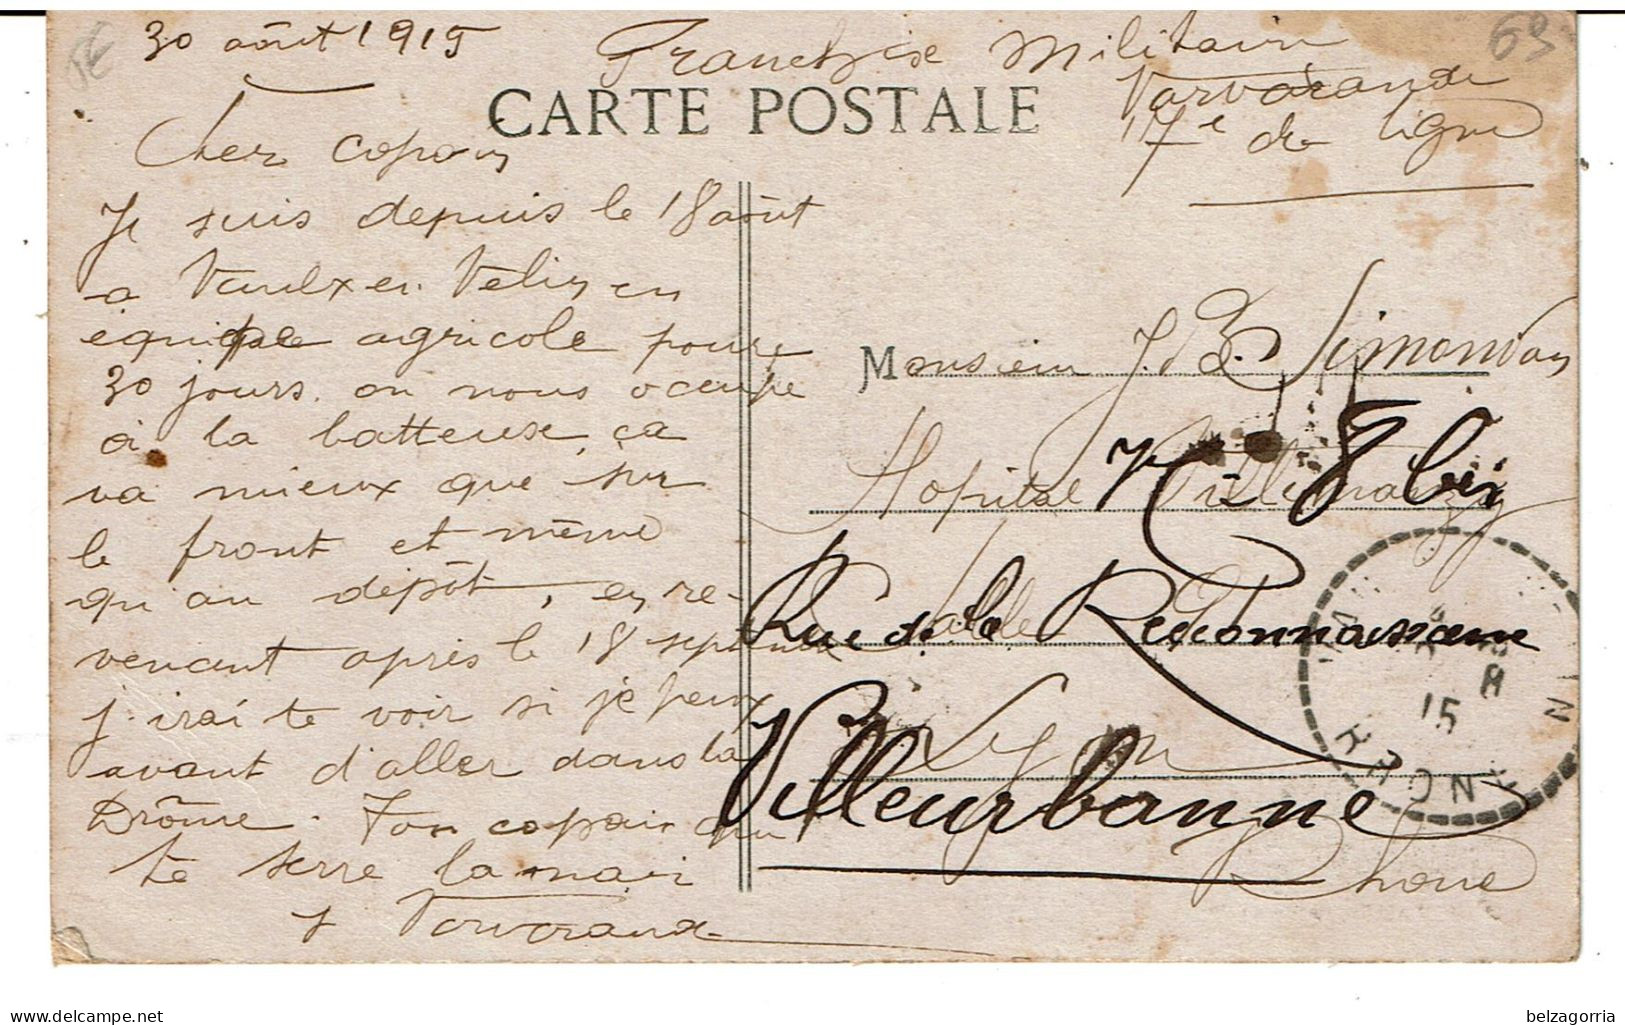 30 août 1915
Franchise Militaire
69
CARTE POSTALE
17e de ligne
Cher copain
Je suis depuis le 18 août
a Vaulx en Velin en
équipe agricole pour
30 jours. on nous occupe
à la batteuse, ça
va mieux que sur
le front et même
qu'au dépôt, en re-
venant après le 18 septembre
j'irai te voir si je peux
avant d'aller dans la
Drôme. Ton copain qui
te serre la main
Monsieur J. B. Simondan
Hopital
N° 8 bis
Rue de la Reconnaissance
Salle
Lyon
Villeurbanne
Rhone
15
delcampe.net
belzagorria